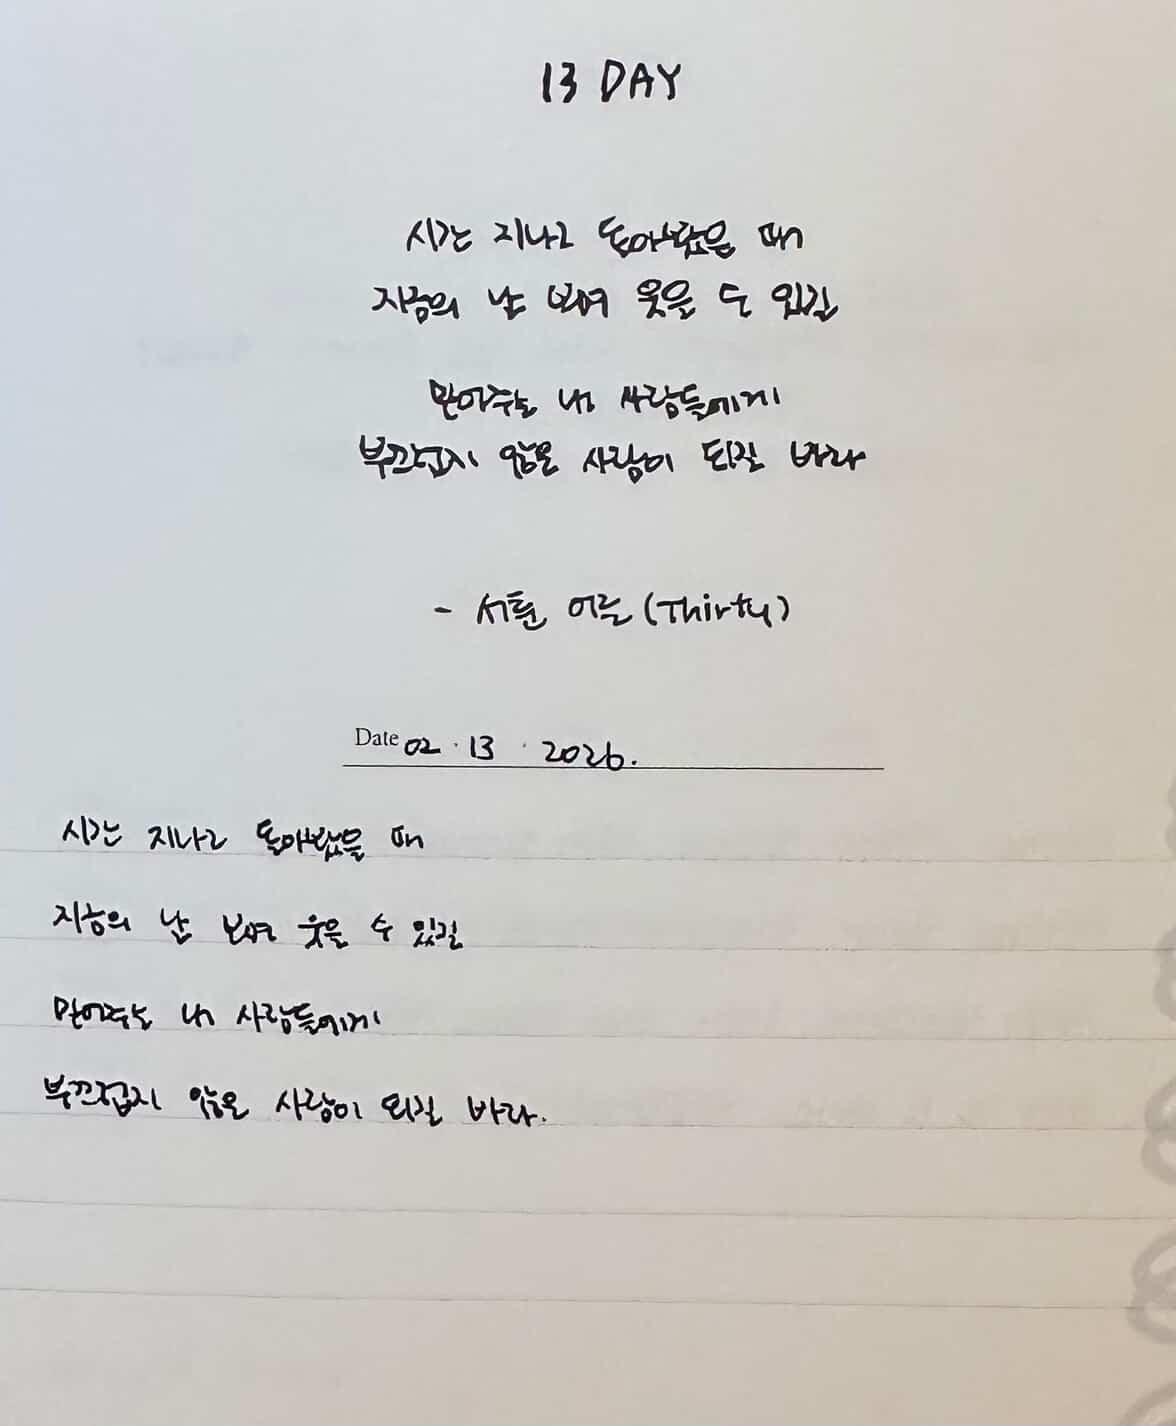 13 DAY
시간은 지나고 돌아봤을 때
지금의 날 보며 웃을 수 있길
믿어주는 내 사람들에게
부끄럽지 않은 사람이 되길 바라
- 서툰 어른 (Thirty)
Date 02 . 13 . 2026.
시간은 지나고 돌아봤을 때
지금의 날 보며 웃을 수 있길
믿어주는 내 사람들에게
부끄럽지 않은 사람이 되길 바라.